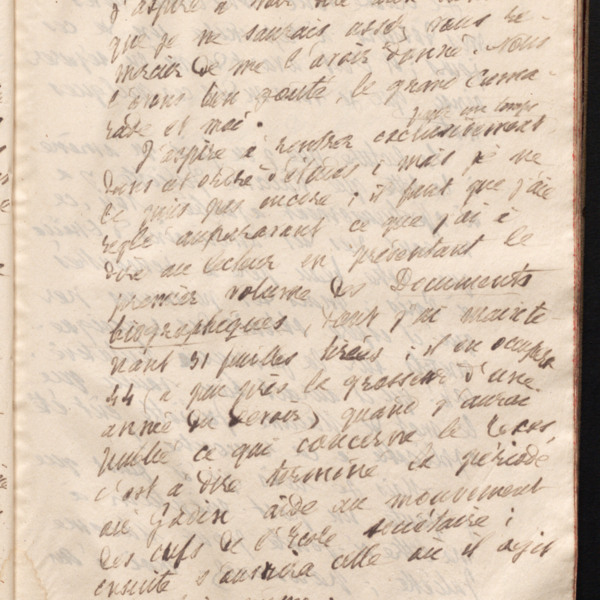 que je ne saurais assez vous re-
mercier de me l'avoir donné. Nous
l'avons bien gouté le grand cama-
rade et moi.
pour un temps
J'aspire à rentrer exclusivement
dans cet ordre d'études ; mais je ne
le puis pas encore ; il faut que j'aie
réglé auparavant ce que j'ai à
dire au lecteur en présentant le
premier volume des Documents
biographiques, dont j'ai mainte-
nant 31 feuilles tirées ; il en occupera
44 (à peu près la grosseur d'une
année du Devoir) quand j'aurai
publié ce qui concerne le Texas
c'est à dire terminé la période
où Godin aide au mouvement
des chefs de l'Ecole sociétaire ;
ensuite s'ouvrira celle où il agit